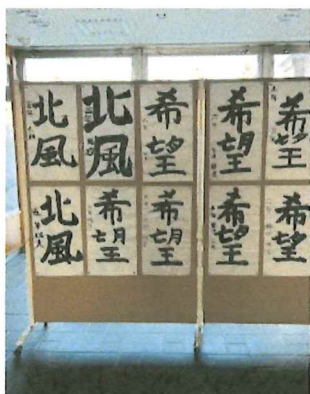 北風
北風
希望
希望
希望
北風
希望
希望
希望
希望